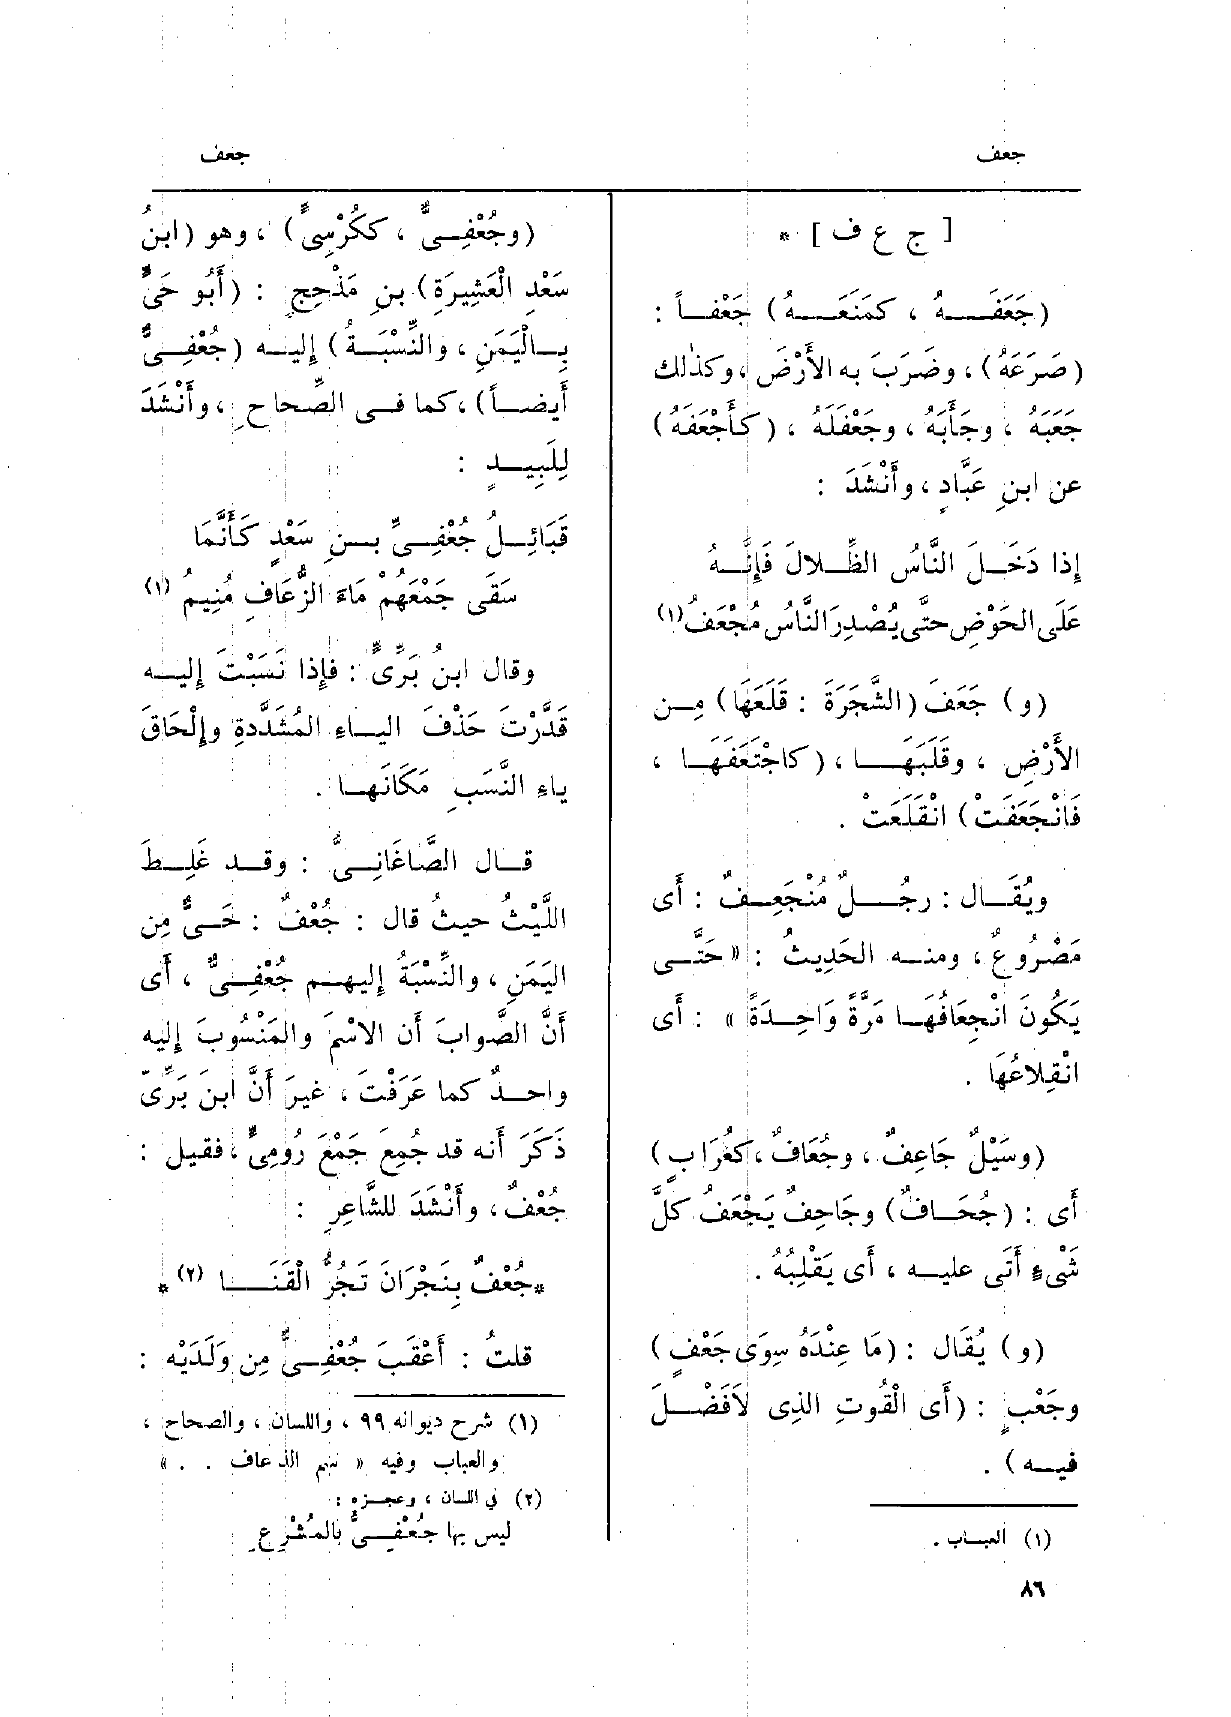 جعف
جعف
[ ج ع ف ] *
(جَعَفَــهُ ، كمَنَعَــهُ) جَعْفــاً :
(صَرَعَهُ) ، وضَرَبَ به الأَرْضَ ، وكذٰلك
جَعَبَهُ ، وجَأَبَهُ ، وجَعْفَلَهُ ، (كأَجْعَفَهُ)
عن ابنِ عَبَّادٍ ، وأَنْشَدَ :
إذا دَخَــلَ النَّاسُ الظِّــلالَ فَإِنَّــهُ
عَلَى الحَوْضِ حتَّى يُصْدِرَ النَّاسُ مُجْعَفُ (١)
(و) جَعَفَ (الشَّجَرَةَ : قَلَعَهَا) مِـن
الأَرْضِ ، وقَلَبَهَــا ، (كاجْتَعَفَهَـا ،
فَانْجَعَفَتْ) انْقَلَعَتْ .
ويُقَــال : رجُــلٌ مُنْجَعِــفٌ : أَى
مَصْرُوعٌ ، ومنــه الحَدِيثُ : « حَتَّــى
يَكُونَ انْجِعَافُهَــا مَرَّةً وَاحِــدَةً » : أَى
انْقِلاعُهَا .
(وسَيْلٌ جَاعِفٌ ، وجُعَافٌ ، كغُرَابٍ)
أَى : (جُحَــافٌ) وجَاحِفٌ يَجْعَفُ كلَّ
شَىْءٍ أَتَى عليــه ، أَى يَقْلِبُهُ .
(و) يُقَال : (مَا عِنْدَهُ سِوَى جَعْفٍ)
وجَعْبٍ : (أَى الْقُوتِ الذِى لاَفَضْــلَ
فيــه) .
(١) العبـاب .
٨٦
(وجُعْفِــىٌّ ، ككُرْسِىٍّ) ، وهو (ابنُ
سَعْدِ العَشِيرَةِ) بنِ مَذْحِجٍ : (أَبُو حَىٍّ
بِــالْيَمَنِ ، والنِّسْبَــةُ) إليــه (جُعْفِــىٌّ
أَيضــاً) ، كما فــى الصِّحاحِ ، وأَنْشَدَ
لِلَبِيــدٍ :
قَبَائِــلُ جُعْفِــىِّ بــنِ سَعْدٍ كَأَنَّمَا
سَقَى جَمْعَهُمْ مَاءَ الزُّعَافِ مُنِيمُ (١)
وقال ابنُ بَرِّىٍّ : فإِذا نَسَبْتَ إِليــه
قَدَّرْتَ حَذْفَ اليــاءِ المُشَدَّدةِ وإِلْحَاقَ
ياءِ النَّسَبِ مَكَانَهـا .
قــال الصَّاغَانِــىُّ : وقــد غَلِــطَ
اللَّيْثُ حيثُ قال : جُعْفٌ : حَــىٌّ مِن
اليَمَنِ ، والنِّسْبَةُ إليهــم جُعْفِــىٌّ ، أَى
أَنَّ الصَّوابَ أن الاسْمَ والمَنْسُوبَ إليه
واحــدٌ كما عَرَفْتَ ، غيرَ أَنَّ ابنَ بَرِّىّ
ذَكَرَ أَنه قد جُمِعَ جَمْعَ رُومِىٍّ ، فقيل :
جُعْفٌ ، وأَنْشَدَ للشَّاعِرِ :
*جُعْفٌ بِنَجْرَانَ تَجُرُّ الْقَنَــا (٢) *
قلتُ : أَعْقَبَ جُعْفِــىٌّ مِن وَلَدَيْهِ :
(١) شرح ديوانه ٩٩ ، واللسان ، والصحاح ،
والعباب وفيه « نيم الذعاف . . »
(٢) في اللسان ، وعجــزه :
ليس بها جُعْفِــىٌّ بالمُشْرِعِ